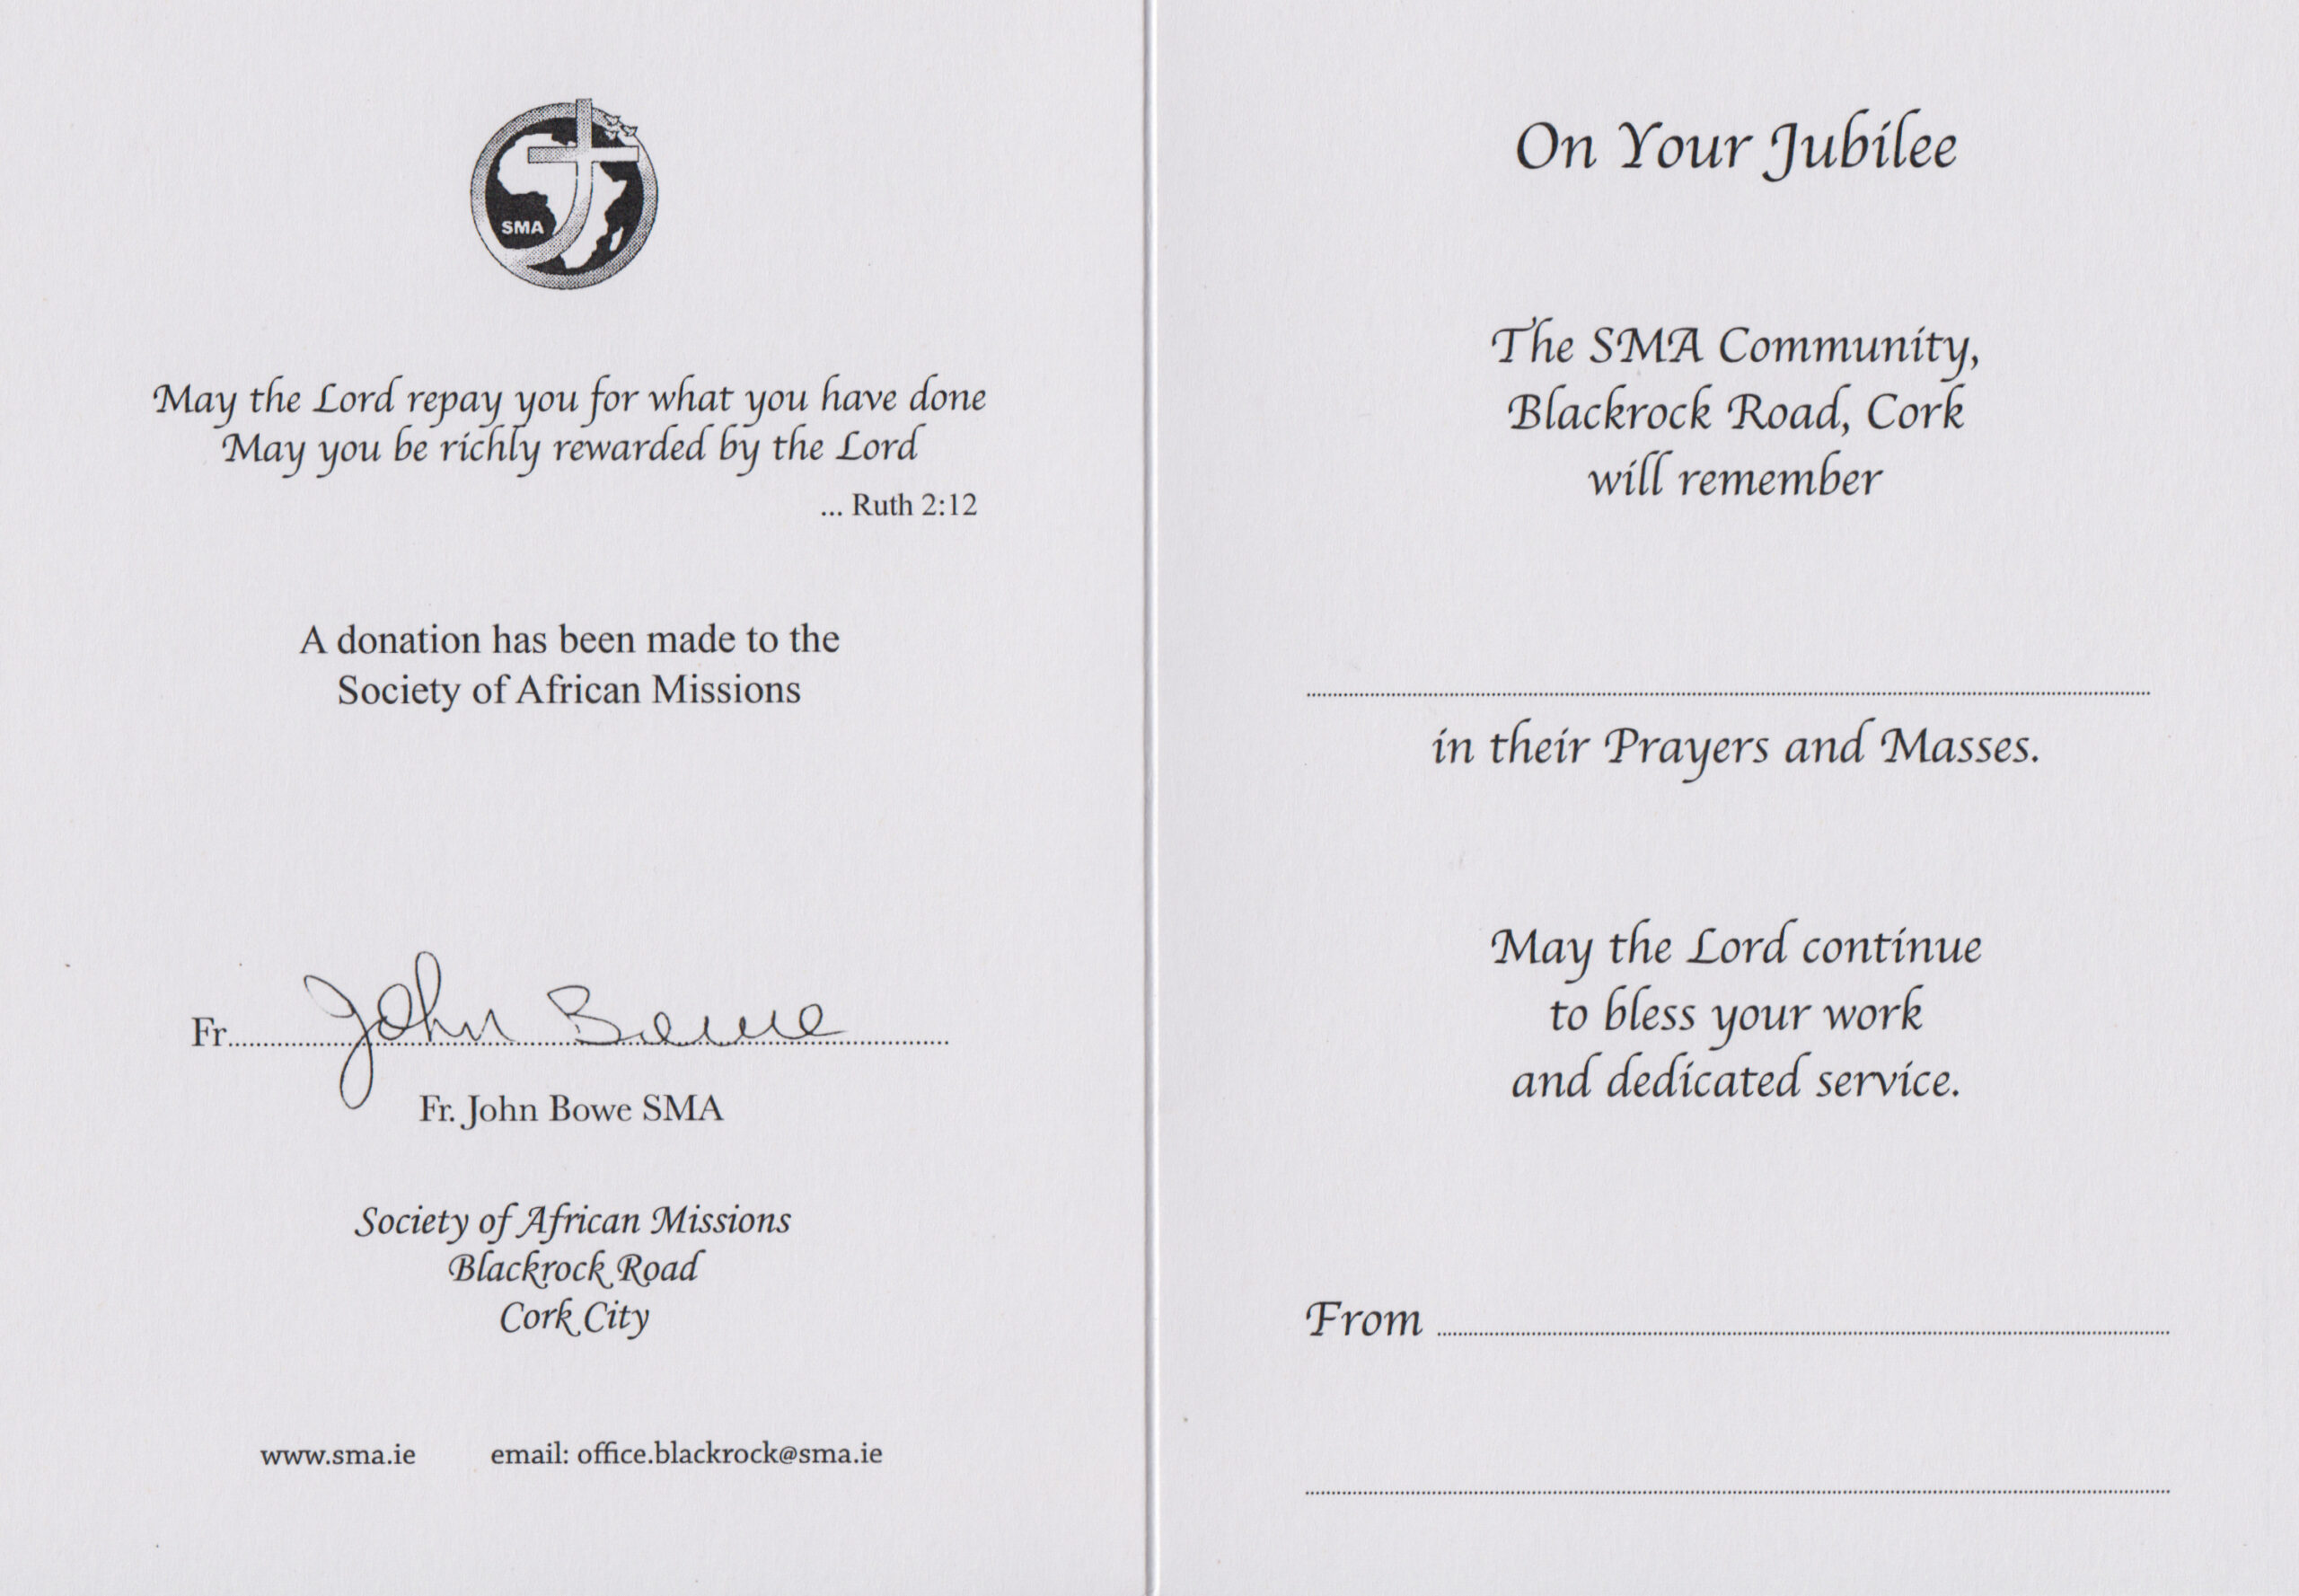 SMA
May the Lord repay you for what you have done
May you be richly rewarded by the Lord
... Ruth 2:12
A donation has been made to the
Society of African Missions
Fr. John Bowe
Fr. John Bowe SMA
Society of African Missions
Blackrock Road
Cork City
www.sma.ie email: office.blackrock@sma.ie
On Your Jubilee
The SMA Community,
Blackrock Road, Cork
will remember
in their Prayers and Masses.
May the Lord continue
to bless your work
and dedicated service.
From